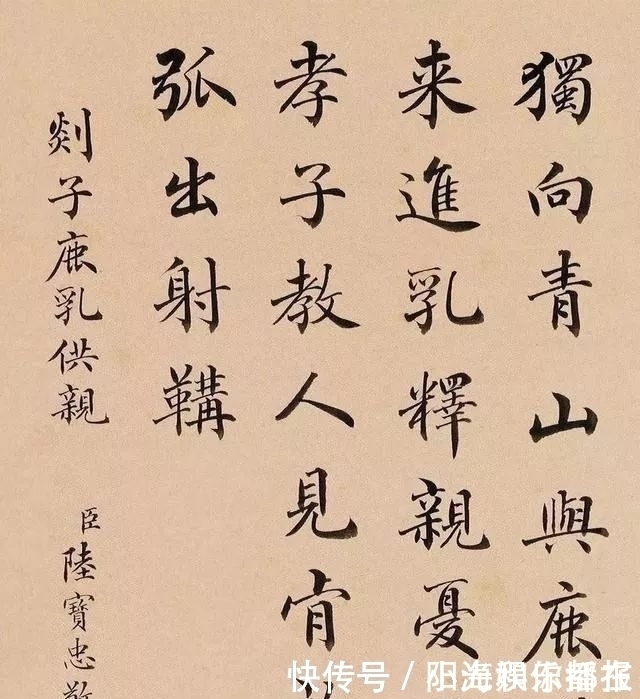 獨向青山與鹿
来進乳釋親憂
孝子教人見肯
弧出射鞲
剡子鹿乳供親
臣陸寶忠敬
快传号／阳